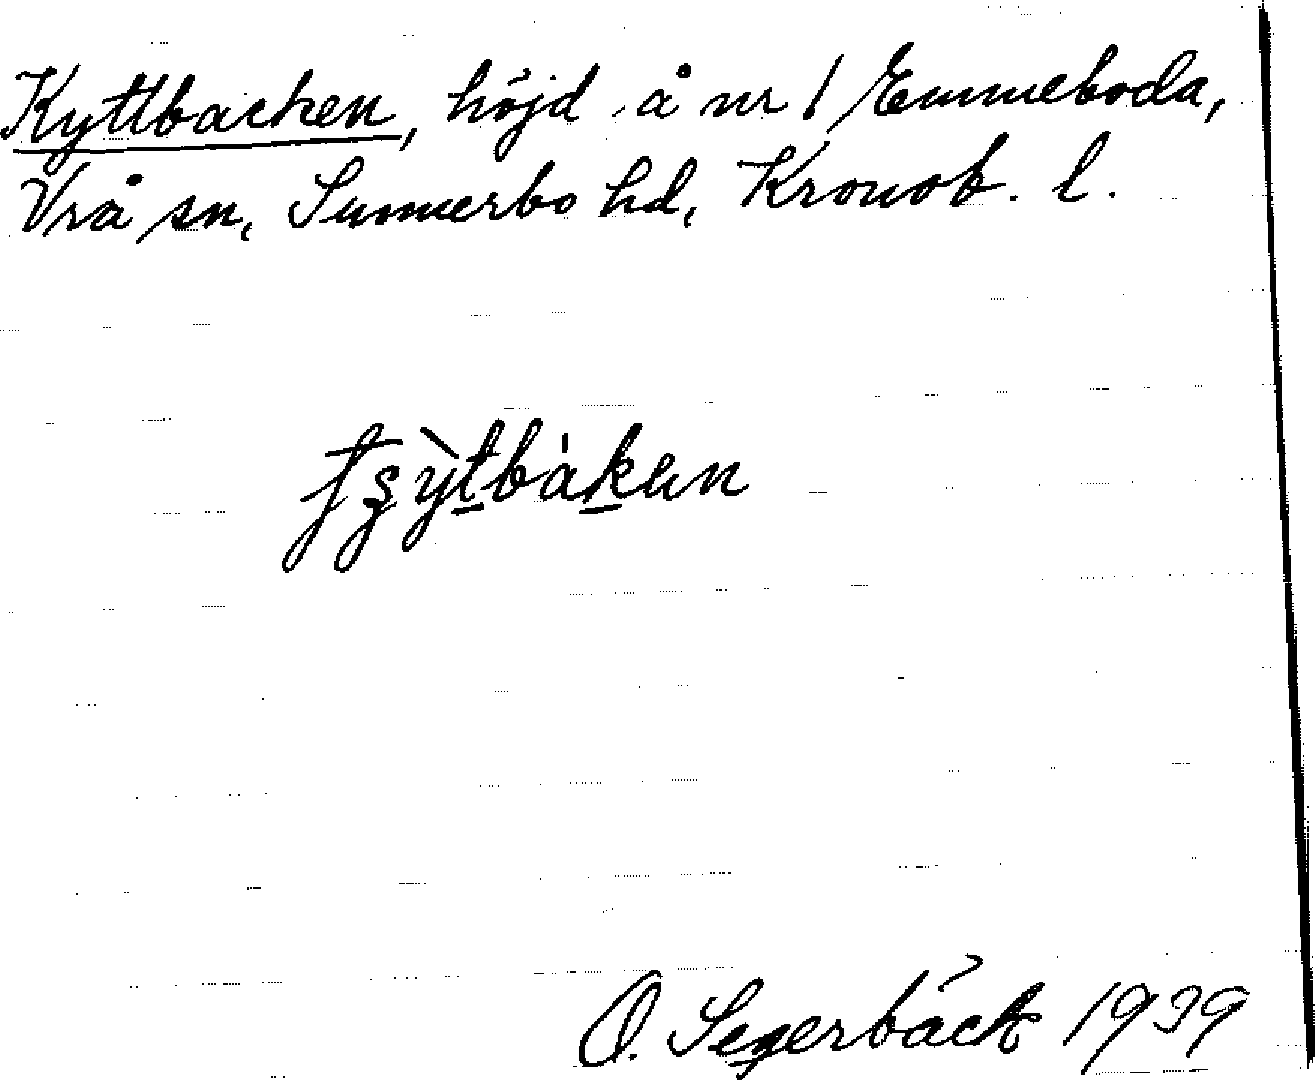 Kyttbacken, höjd å nr 1 Emmeboda,
Vrå sn, Sunnerbo hd, Kronob. l.
O. Segerbäck 1939